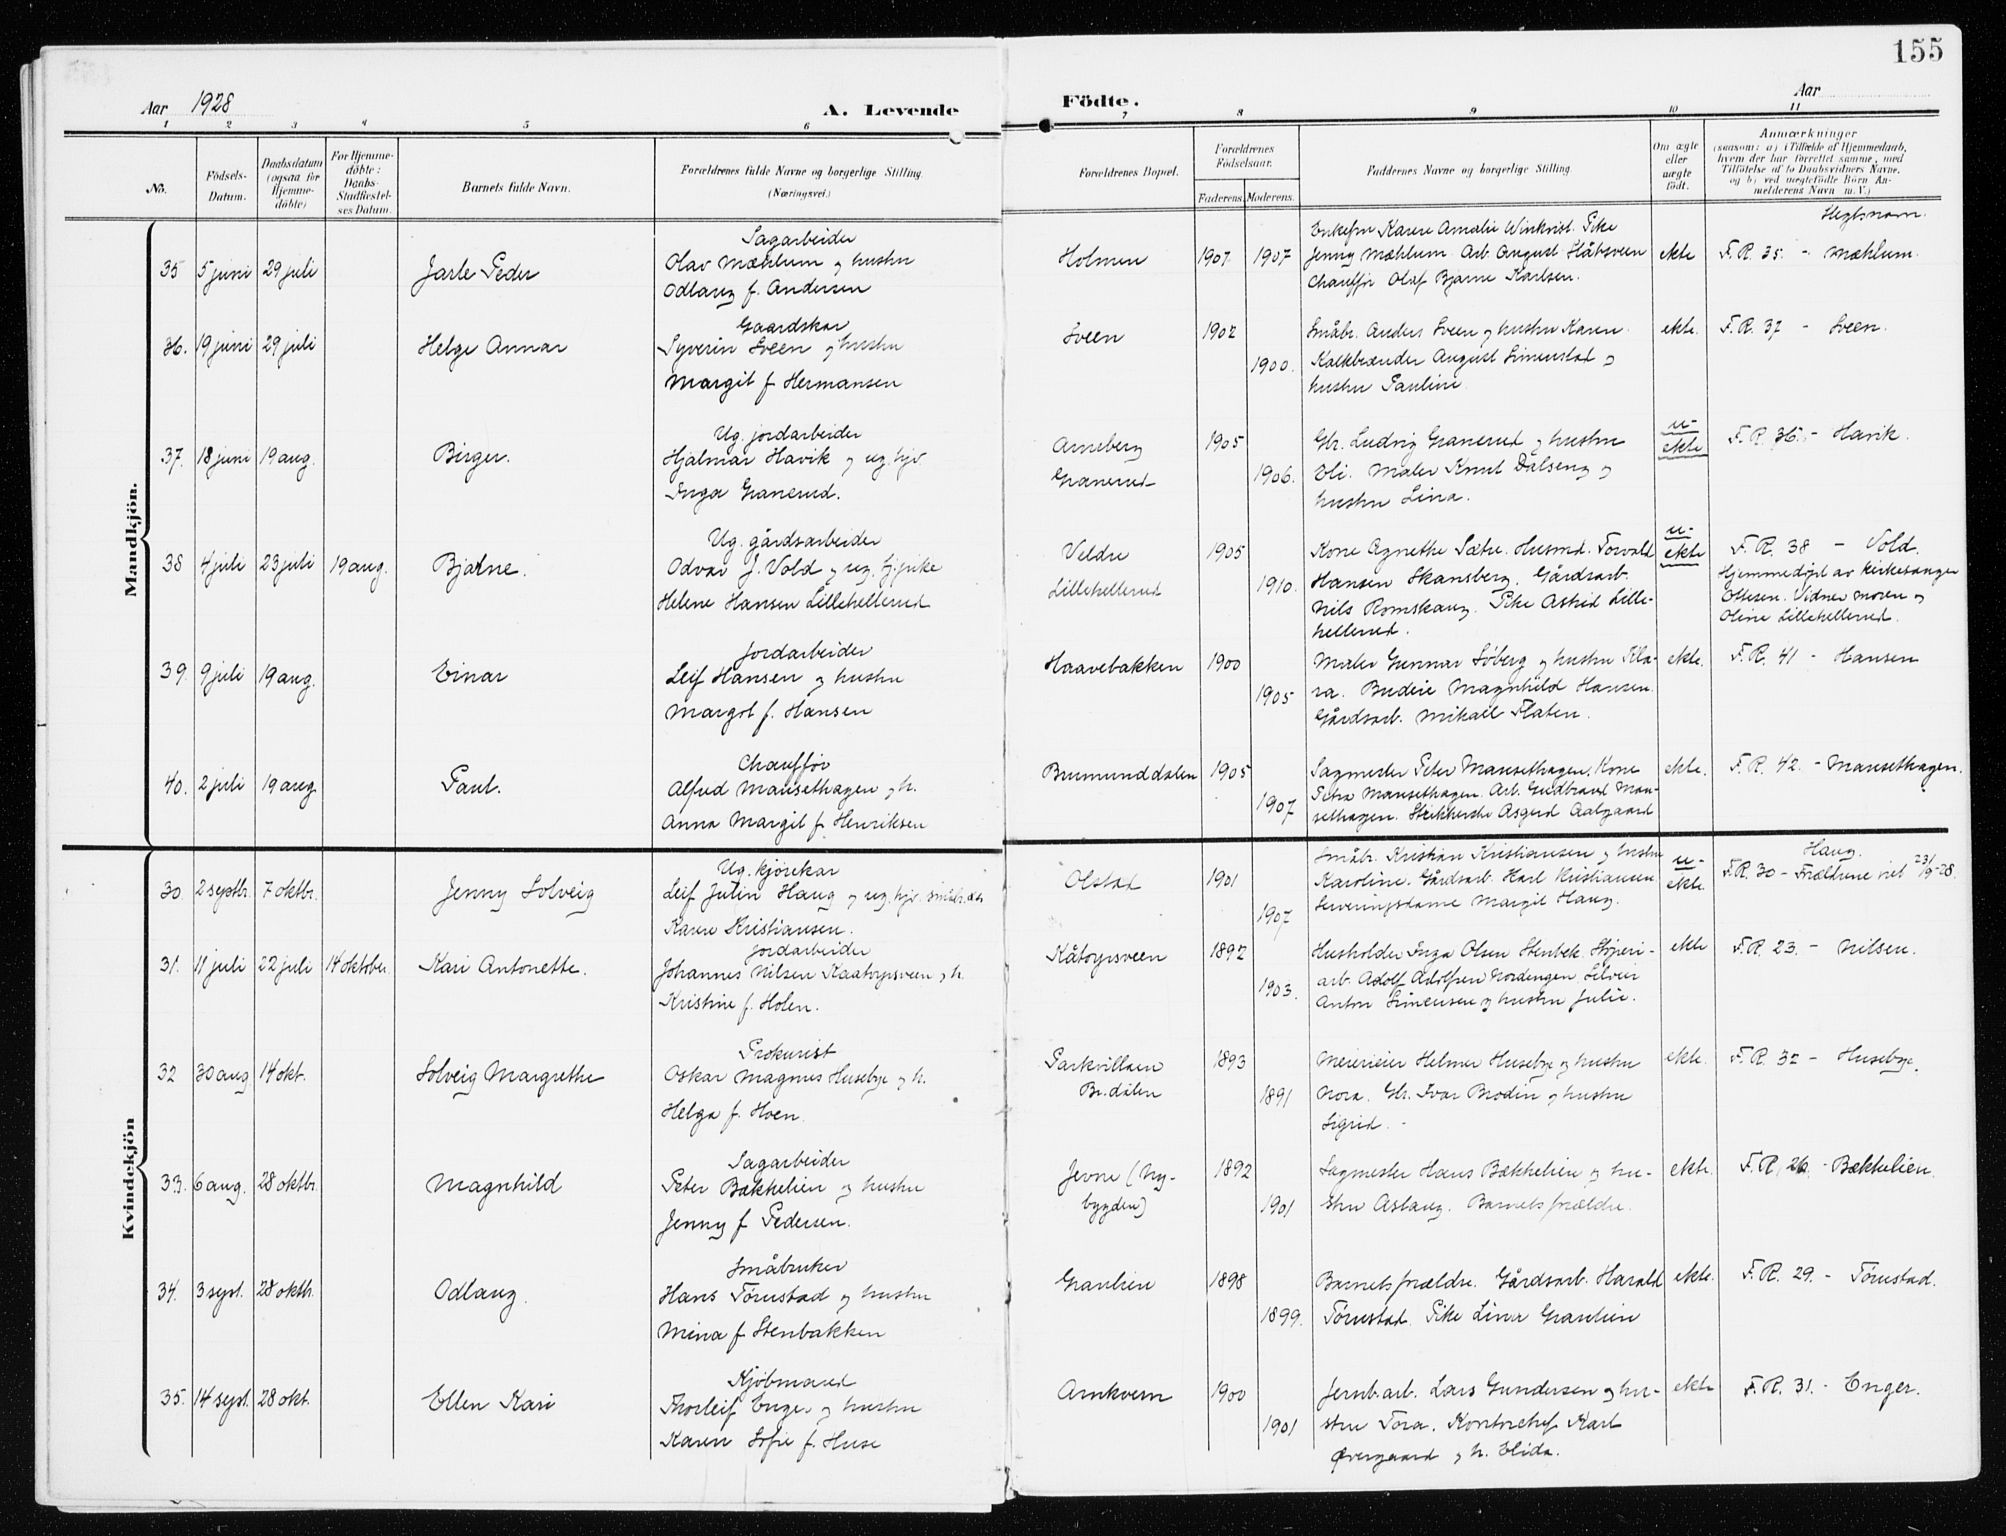 155
Aar 1928
A. Levende Födte.
Aar
1 2 3 4 5 6 7 8 9 10 11
No.
Födsels-Datum.
Daabsdatum (ogsaa for Hjemme-döbte)
For Hjemme-döbte: Daabs-Stadfæstel-ses Datum.
Barnets fulde Navn.
Forældrenes fulde Navne og borgerlige Stilling. (Næringsvei.)
Forældrenes Bopæl.
Forældrenes Födselsaar.
Faderens. Moderens.
Faddernes Navne og borgerlige Stilling.
Om ægte eller uægte födt.
Anmærkninger (saasom: a) i Tilfælde af Hjemmedaab, hvem der har forrettet samme, med Tilföielse af to Daabsvidners Navne, og b) ved uægtefödte Börn An-melderens Navn m. V.)
Mandkjön.
35 5 juni 29 juli
Jarle Peder
Sagarbeider
Olav Mæhlum og hustru
Odlaug f. Andersen
Holmen
1907 1907
Enkefru Karen Amalie Winkvist. Pike
Jenny Mæhlum. Arb. August Håbsveen
Chauffør Olaf Bjarne Karlsen.
ekte
Slegtsnavn.
F.R. 35 - Mæhlum.
36. 19 juni 29 juli
Helge Annar
Gaardskar
Syverin Sveen og hustru
Margit f Hermansen
Sveen
1902
1900.
Småbr. Anders Sveen og hustru Karen.
Kalkbrænder August Simenstad og
hustru Pauline.
ekte.
F.R. 37 - Sveen.
37. 18 juni 19 aug.
Birger.
Ug. jordarbeider
Hjalmar Havik og ug. hjv.
Inga Granerud.
Arneberg
Granerud
1905
1906.
Gbr. Ludvig Granerud og hustru
Eli. Maler Knut Dalseng og
hustru Lina.
u-
ekte
F.R. 36 - Havik.
38 4 juli 23 juli 19 aug.
Bjarne.
Ug. gårdsarbeider
Odvar J. Vold og ug. tj.pike
Helene Hansen Lillehellerud
Veldre
Lillehellerud
1905
1910.
Kone Agnethe Sætre. Husmd. Torvald
Hansen Skansberg. Gårdsarb.
Nils Romskaug. Pike Astrid Lille-
hellerud.
u-
ekte
F.R. 38 - Vold.
Hjemmedøpt av kirkesanger
Ottesen. Vidner moren og
Oline Lillehellerud.
39. 9 juli 19 aug.
Einar
Jordarbeider
Leif Hansen og hustru
Margot f. Hansen
Haavebakken
1900
1905
Maler Gunnar Søberg og hustru Kla-
ra. Budeie Magnhild Hansen.
Gårdsarb. Mikael Flaten.
ekte.
F.R. 41 - Hansen
40. 2 juli 19 aug.
Paul.
Chauffør
Alfred Mausethagen og h.
Anna Margit f. Henriksen
Brumunddalen
1905
1907
Sagmester Peter Mausethagen. Kone
Petra Mausethagen. Arb. Gudbrand Mau-
sethagen. Strikkerske Asgerd Aalgaard
ekte.
F.R. 42. - Mausethagen.
Kvindekjön
30. 2 septbr. 7 oktbr.
Jenny Solveig
Ug. kjørekar
Leif Julin Haug og ug. hjv. småbr.dtr
Karen Kristiansen.
Olstad
1901
1907
Småbr. Kristian Kristiansen og hustru
Karoline. Gårdsarb. Karl Kristiansen
Serveringsdame Margit Haug.
u-
ekte.
Haug.
F.R. 30 - Foreldrene viet 23/9-28.
31. 11 juli 22 juli 14 oktober.
Kari Antonette.
Jordarbeider
Johannes Nilsen Kaatorpsveen og h.
Kristine f. Holen.
Kåtorpsveen
1892
1903.
Husholder Inga Olsen Stenbek. Høveri-
arb. Adolf Adolfsen Nordengen. Selveier
Anton Simensen og hustru Julie.
ekte
F.R. 23. - Nilsen.
32 30 aug 14 okt.
Solveig Margrethe
Prokurist
Oskar Magnus Husebye og h.
Helga f. Hoen.
Parkvillaen
Br.dalen
1893
1891
Meierieier Helmer Husebye og hustru
Nora. Gbr. Ivar Brodin og hustru
Sigrid.
ekte.
F.R. 32 - Husebye.
33. 6 aug. 28 oktbr.
Magnhild
Sagarbeider
Peter Bækkelien og hustru
Jenny f Pedersen.
Jevne (Ny-
bygden)
1892
1901
Sagmester Hans Bækkelien og hu-
stru Aslaug. Barnets foreldre.
ekte.
F.R. 26. - Bækkelien.
34. 3 sept. 28 oktbr.
Odlaug.
Småbruker
Hans Tørustad og hustru
Mina f Stenbakken
Granlien
1898
1899.
Barnets foreldre. Gårdsarb. Harald
Tørustad. Pike Lina Granlien
ekte.
F.R. 29. - Tørustad.
35. 14 sept. 28 okt.
Ellen Kari
Kjøbmand
Thorleif Enger og hustru
Karen Sofie f. Huse
Arnkvern
1900
1901
Jernb.arb. Lars Gundersen og hu-
stru Tora. Kontorchef Karl
Øvergaard og h. Elida.
ekte
F.R. 31. - Enger.